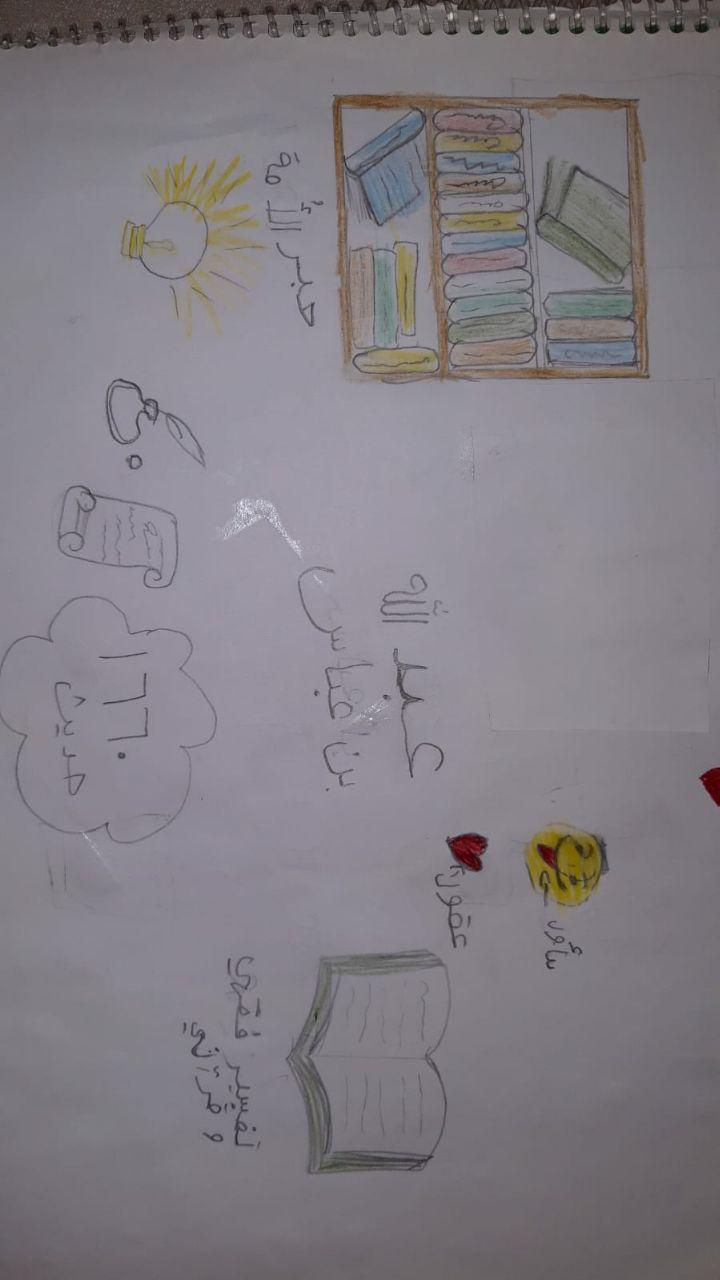 عقول
عبد الله
بن عباس
حبر الأُمة
تفسير فقهي
و قرآني
١٦٦٠
حديث